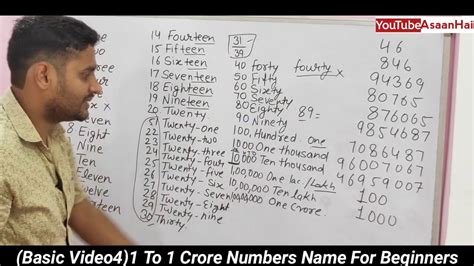 YouTubeAsaanHai
Eight
Nine
Ten
14 Fourteen
15 Fifteen
16 Sixteen
17 Seventeen
18 Eighteen
19 Nineteen
20 Twenty
Twenty-one
22 Twenty-two
23 Twenty-three
24 Twenty-four
25 Twenty-five
26 Twenty-Six
27 Twenty-Seven
28 Twenty-Eight
29 Twenty-nine
30 Thirty.
31
39
40 Forty fourty x
50 Fifty
60 Sixty
70 Seventy
80 Eighty 89=
90 Ninety
100, Hundred. One
1000 One thousand
10,000 Ten thousand
1,00,000 One lac/Lakh
10,00,000 Ten Lakh
1,00,00,000 One Crore.
46
846
94369
80765
876065
9854687
7086487
96007067
46959007
100
1000
(Basic Video4)1 To 1 Crore Numbers Name For Beginners